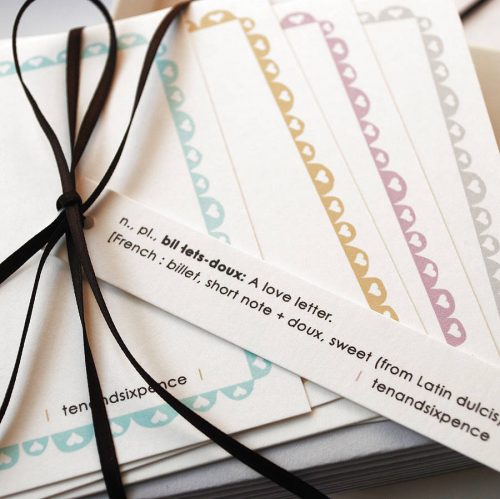 n., pl., bil·lets-doux: A love letter.
[French : billet, short note + doux, sweet (from Latin dulcis)
tenandsixpence
tenandsixpence